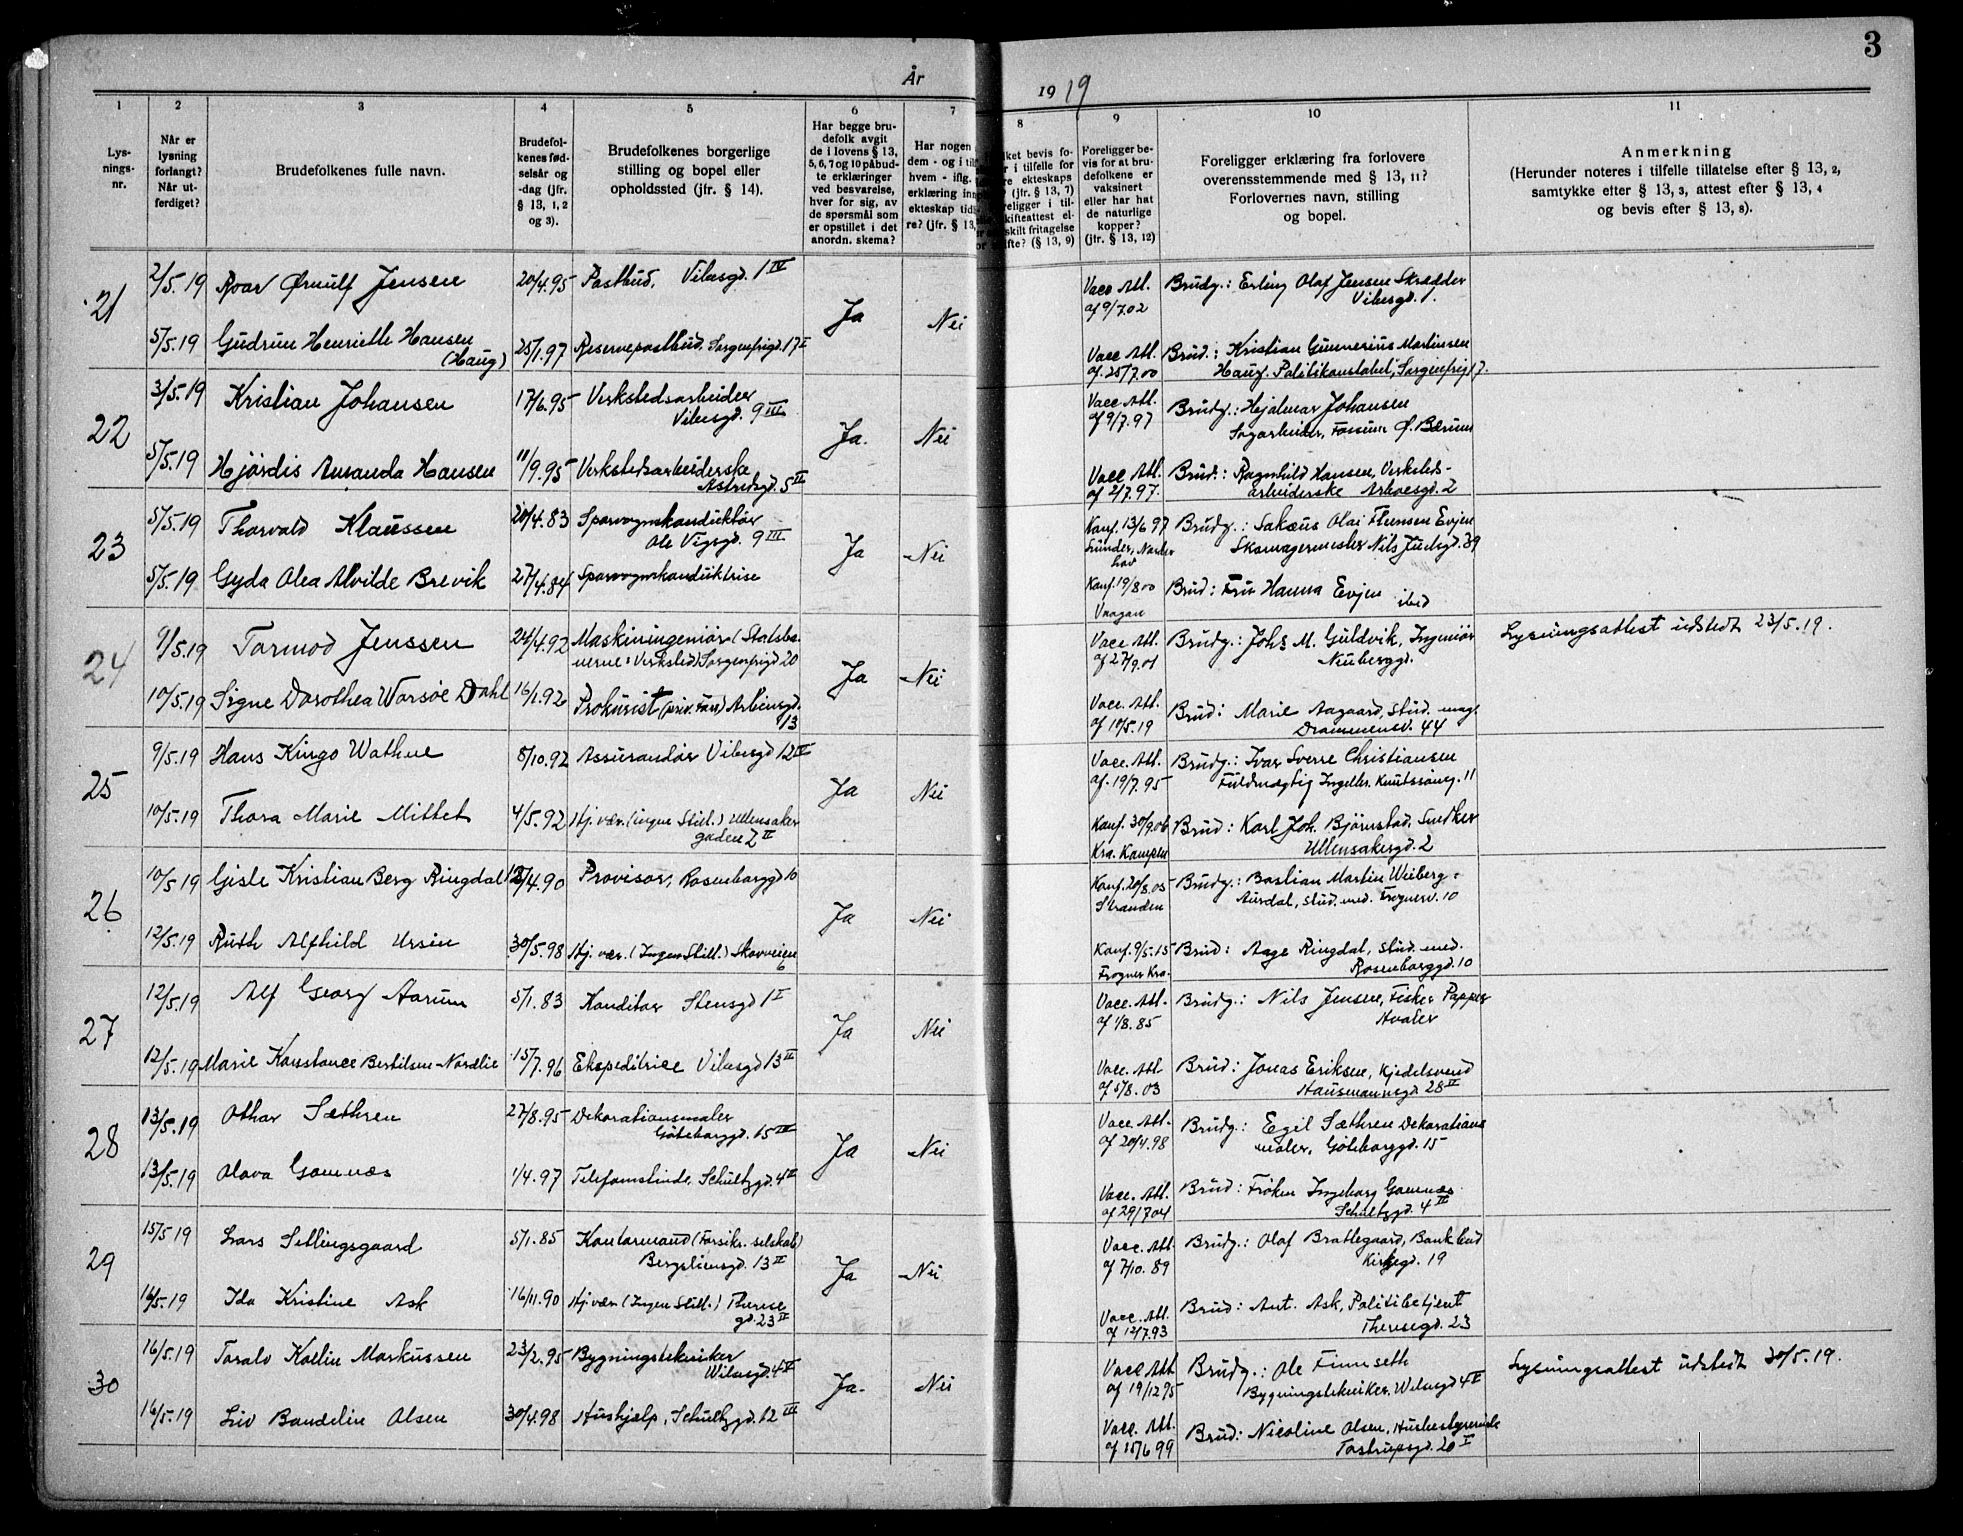 3
År 1919
1 2 3 4 5 6 7 8 9 10 11
Lys-
nings-
nr.
Når er
lysning
forlangt?
Når ut-
ferdiget?
Brudefolkenes fulle navn.
Brudefol-
kenes fød-
selsår og
-dag (jfr.
§ 13, 1, 2
og 3).
Brudefolkenes borgerlige
stilling og bopel eller
opholdssted (jfr. § 14).
Har begge bru-
defolk avgit
de i lovens § 13,
5, 6, 7 og 10 påbud-
te erklæringer
ved besvarelse,
hver for sig, av
de spørsmål som
er opstillet i det
anordn. skema?
Har nogen
dem - og i til
hvem - iflg.
erklæring inn
ekteskap tid
re? (jfr. § 13,
ket bevis fo-
r i tilfelle for
re ekteskaps
? (jfr. § 13, 7)
religger i til-
skifteattest el-
skilt fritagelse
ifte? (§ 13, 9)
Foreligger be-
vis for at bru-
defolkene er
vaksinert
eller har hat
de naturlige
kopper?
(jfr. § 13, 12)
Foreligger erklæring fra forlovere
overensstemmende med § 13, 11?
Forlovernes navn, stilling
og bopel.
Anmerkning
(Herunder noteres i tilfelle tillatelse efter § 13, 2,
samtykke efter § 13, 3, attest efter § 13, 4
og bevis efter § 13, 8).
21 2/5.19 Roar Ørnulf Jensen 20/4.95 Postbud, Vibesgd. 1 IV Ja Nei Vacc. Att. af 9/7.02 Brudg.: Erling Olaf Jensen Skrædder
Vibesgd. 1.
5/5.19 Gudrun Henriette Hansen 25/1.97 Reservepostbud. Sorgenfrigd. 17 I Vacc. Att. Brud.: Kristian Gunnerius Martinsen
(Haug) af. 25/7.00 Haug. Politikonstabel, Sorgenfrig 17.
22 3/5.19 Kristian Johansen 17/6.95 Verkstedsarbeider Ja. Nei Vacc Att. Brudg.: Hjalmar Johansen
Vibesgd. 9 III af 9/7.97 Sagarbeider, Fossum Ø. Bærum
5/5.19 Hjørdis Amanda Hansen 11/9.95 Verkstedsarbeiderske Vacc Att. Brud.: Ragnhild Hansen, Verksteds-
Astridsgd. 5 II af 2/7.97. arbeiderske Arboesgd. 2
23 5/5.19 Thorvald Klaussen 20/4.83 Sporvognskonduktør Ja Nei Konf. 13/6 97 Brudg.: Sakæus Olai Evjen
Ole Vigsgd. 9 III Skomagermester Nils Juelsgd. 39
5/5.19 Gyda Olea Alvilde Brevik 27/4.84 Sporvognskonduktrise Konf. 19/8 00 Brud: Fru Hanna Evjen ibid
Vaagan
24 9/5.19 Tormod Jenssen 24/4.92 Maskiningeniør (Statsba- Ja Nei Vacc Att. Brudg: Johs M. Guldvik, Ingeniør Lysningsattest udstedt 23/5.19.
nerne: Verksted) Sorgenfrigd 20 af 27/9.01 Neuberggd.
10/5.19 Signe Dorothea Warsøe Dahl 16/1.92 Prokurist (priv. Forr) Arbiensgd. Vacc. Att. Brud: Marie Aagaard, stud. mag.
13 af 10/5.19 Drammensv. 44
25 9/5.19 Hans Kingo Wathne 8/10.92 Assurandør Vibesgd 12 IV Ja Nei Vacc. Att. Brudg: Ivar Sverre Christiansen
af. 19/7.95 Fuldmægtig 11
10/5.19 Thora Marie Mittet 4/5.92 Hj. vær. (ingen Still.) Ullensaker Konf. 30/9.06 Brud: Karl Joh. Bjørnstad, Snedker
gaden 2 II Kra. Kampen Ullensakergd. 2
26 10/5.19 Gisle Kristian Berg Ringdal 4.90 Provisor, Rosenborggd 10 Ja Nei Konf. 20/8.05 Brudg.: Bastian Martin Weiberg-
Stranden Aurdal, stud. med. Frognerv. 10
12/5.19 Ruth Alfhild Ursin 30/5.98 Hj. vær. (Ingen Still.) Skovveien Konf. 9/5.15 Brud: Aage Ringdal, stud. med.
6 Frogner Kra. Rosenborggd. 10
27 12/5.19 Alf Georg Aarum 5/1.83 Konditor Stensgd 1 I Ja Nei Vacc. Att. Brudg.: Nils Jensen, Fisker Papper
af 1/8.85 Hvaler
12/5.19 Marie Konstance Bertilsen-Nordlie 15/7.96 Ekspeditrice Vibesgd 13 II Vacc. Att Brud: Jonas Eriksen, Kjedelsvend
af 5/8.03 Hausmannsgd 28 II
28 13/5.19 Othar Sæthren 27/8.95 Dekorationsmaler Ja Nei Vacc. Att. Brudg.: Egil Sæthren Dekorations
Göteborggd. 15 IV af 20/4.98 maler, Göteborggd. 15
13/5.19 Olava Gamnæs 1/4.97 Telefonistinde. Schultzgd. 4 II Vacc. Att. Brud: Frøken Ingeborg Gamnæs
af 29/7 04 Schultzgd. 4 II
29 15/5 19 Lars Sellingsgaard 5/1.85 Kontormand (Forsikr. selskab) Ja Nei Vacc. Att. Brudg.: Olaf Brattegaard, Bankbud
Bergsliensgd. 13 II af 7/10.89 Kirkegd. 19
16/5.19 Ida Kristine Ask 16/11.90 Hj. vær. (Ingen Still.) Therese Vacc. Att. Brud: Ant. Ask, Politibetjent
gd. 23 II af 12/7.93 Theresegd. 23
30 16/5.19 Toralv Kollin Markussen 23/2.95 Bygningstekniker Ja. Nei Vacc Att Brudg.: Ole Finnseth Lysningsattest udstedt 30/5.19.
Wibesgd. 4 V af 19/12 95 Bygningstekniker, Wibesgd 4 V
16/5.19 Liv Bandeline Olsen 30/4.98 Hushjælp, Schultzgd. 12 III Vacc. Att. Brud: Nicoline Olsen, Husbestyrerinde
af 15/6 99 Tostrupsgd. 20 I